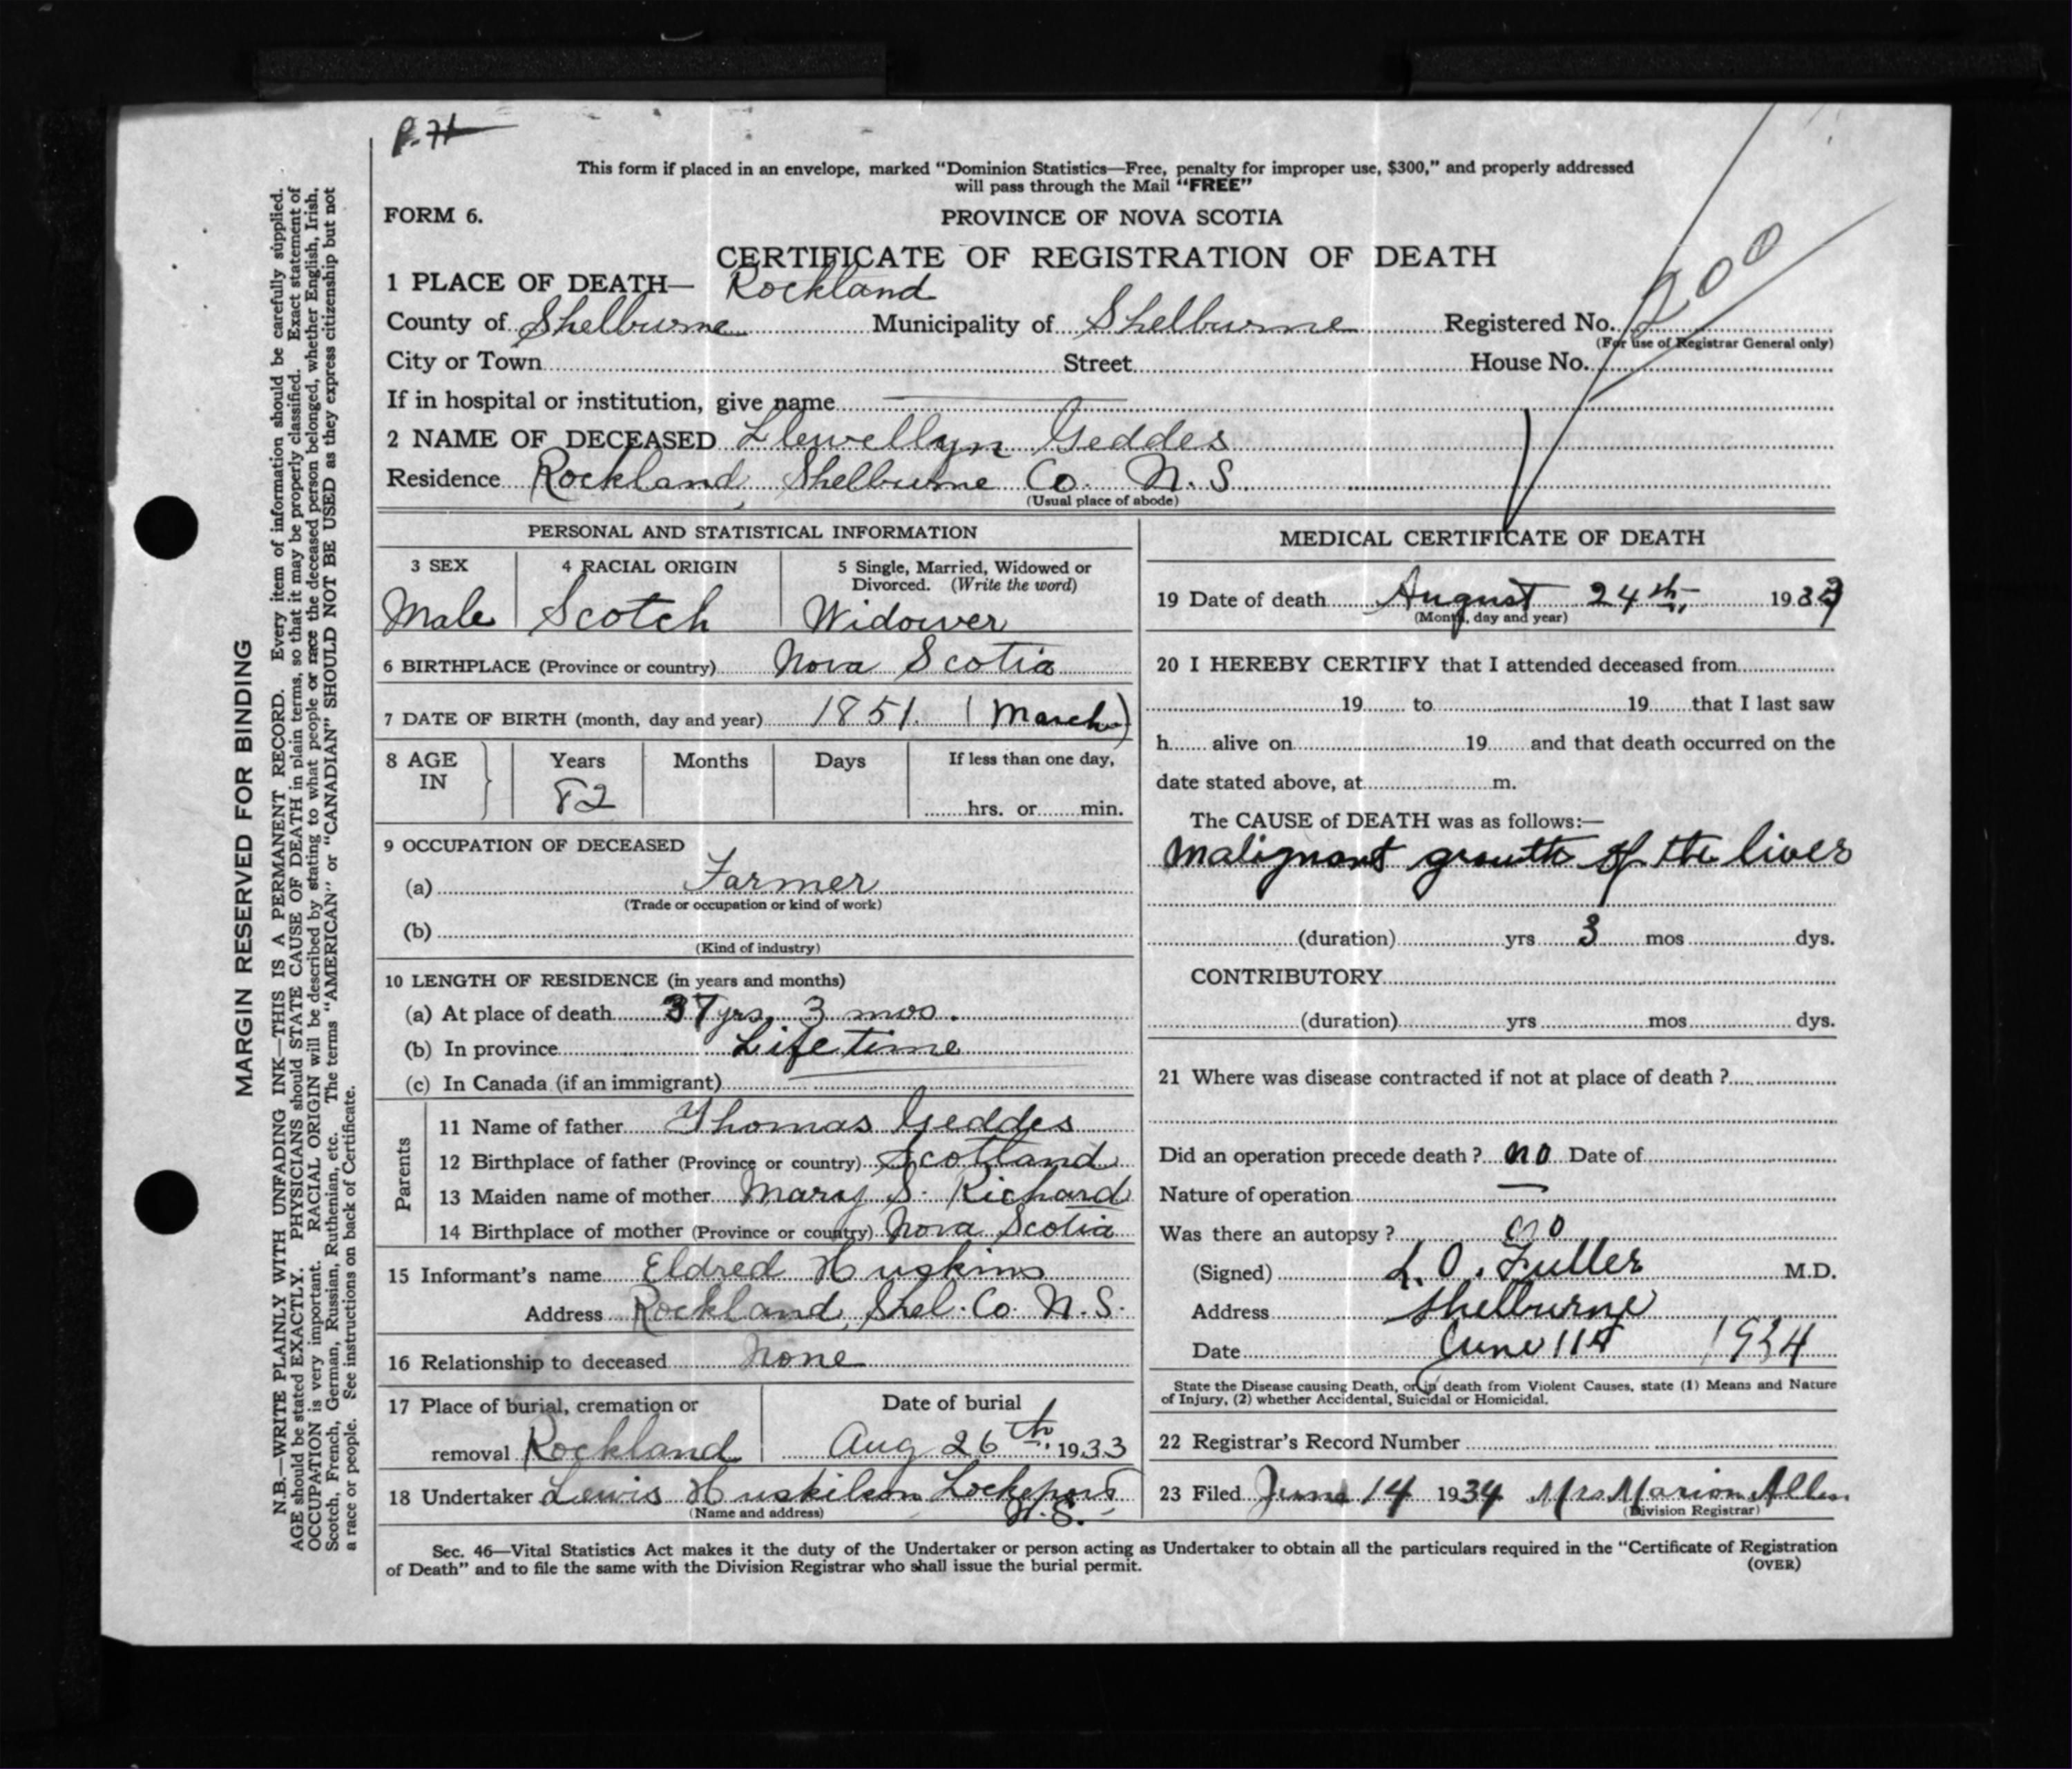 P. 71
This form if placed in an envelope, marked “Dominion Statistics—Free, penalty for improper use, $300,” and properly addressed
will pass through the Mail “FREE”
FORM 6.
PROVINCE OF NOVA SCOTIA
CERTIFICATE OF REGISTRATION OF DEATH
1 PLACE OF DEATH— Rockland
County of Shelburne Municipality of Shelburne Registered No. 200
(For use of Registrar General only)
City or Town Street House No.
If in hospital or institution, give name
2 NAME OF DECEASED Llewellyn Geddes
Residence Rockland, Shelburne Co. N.S.
(Usual place of abode)
PERSONAL AND STATISTICAL INFORMATION
3 SEX 4 RACIAL ORIGIN 5 Single, Married, Widowed or
Divorced. (Write the word)
Male Scotch Widower
6 BIRTHPLACE (Province or country) Nova Scotia
7 DATE OF BIRTH (month, day and year) 1851. (March)
8 AGE IN Years Months Days If less than one day,
82 hrs. or min.
9 OCCUPATION OF DECEASED
(a) Farmer
(Trade or occupation or kind of work)
(b)
(Kind of industry)
10 LENGTH OF RESIDENCE (in years and months)
(a) At place of death 37 yrs. 3 mos.
(b) In province Lifetime
(c) In Canada (if an immigrant)
Parents
11 Name of father Thomas Geddes
12 Birthplace of father (Province or country) Scotland
13 Maiden name of mother Mary S. Richard
14 Birthplace of mother (Province or country) Nova Scotia
15 Informant’s name Eldred Huskins
Address Rockland, Shel. Co. N.S.
16 Relationship to deceased None
17 Place of burial, cremation or Date of burial
removal Rockland Aug 26th. 1933
18 Undertaker Lewis Huskilson Lockeport
N.S.
(Name and address)
MEDICAL CERTIFICATE OF DEATH
19 Date of death August 24th 1933
(Month, day and year)
20 I HEREBY CERTIFY that I attended deceased from
19 to 19 that I last saw
h alive on 19 and that death occurred on the
date stated above, at m.
The CAUSE of DEATH was as follows:—
Malignant growth of the liver
(duration) yrs 3 mos dys.
CONTRIBUTORY
(duration) yrs mos dys.
21 Where was disease contracted if not at place of death ?
Did an operation precede death ? no Date of
Nature of operation —
Was there an autopsy ? no
(Signed) L. O. Fuller M.D.
Address Shelburne
Date June 11th 1934
State the Disease causing Death, or in death from Violent Causes, state (1) Means and Nature
of Injury, (2) whether Accidental, Suicidal or Homicidal.
22 Registrar’s Record Number
23 Filed June 14 1934 Mrs Marion Allen
(Division Registrar)
Sec. 46—Vital Statistics Act makes it the duty of the Undertaker or person acting as Undertaker to obtain all the particulars required in the “Certificate of Registration
of Death” and to file the same with the Division Registrar who shall issue the burial permit.
(OVER)
MARGIN RESERVED FOR BINDING
N.B.—WRITE PLAINLY WITH UNFADING INK—THIS IS A PERMANENT RECORD. Every item of information should be carefully supplied.
AGE should be stated EXACTLY. PHYSICIANS should STATE CAUSE OF DEATH in plain terms, so that it may be properly classified. Exact statement of
OCCUPATION is very important. RACIAL ORIGIN will be described by stating to what people or race the deceased person belonged, whether English, Irish,
Scotch, French, German, Russian, Ruthenian, etc. The terms “AMERICAN” or “CANADIAN” SHOULD NOT BE USED as they express citizenship but not
a race or people. See instructions on back of Certificate.